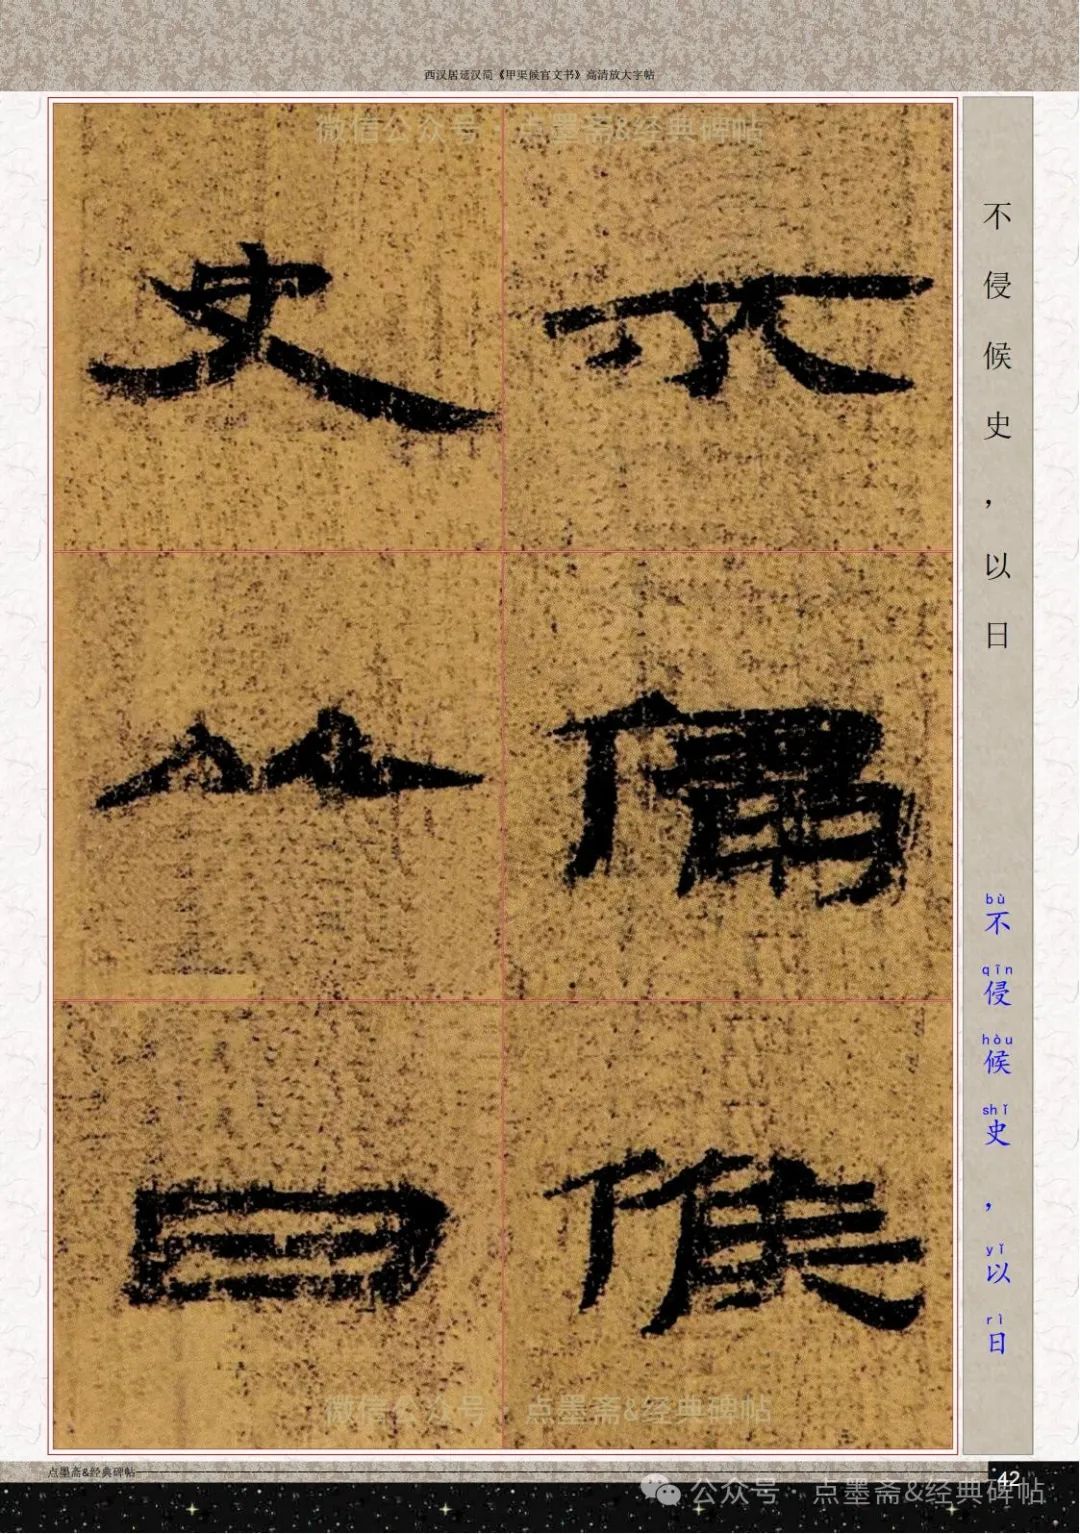 西汉居延汉简《甲渠候官文书》高清放大字帖
微信公众号·点墨斋&经典碑帖
不侵候
史以日
不侵候史，以日
bù qīn hòu shǐ yǐ rì
不侵候史，以日
微信公众号·点墨斋&经典碑帖
点墨斋&经典碑帖
42
公众号·点墨斋&经典碑帖